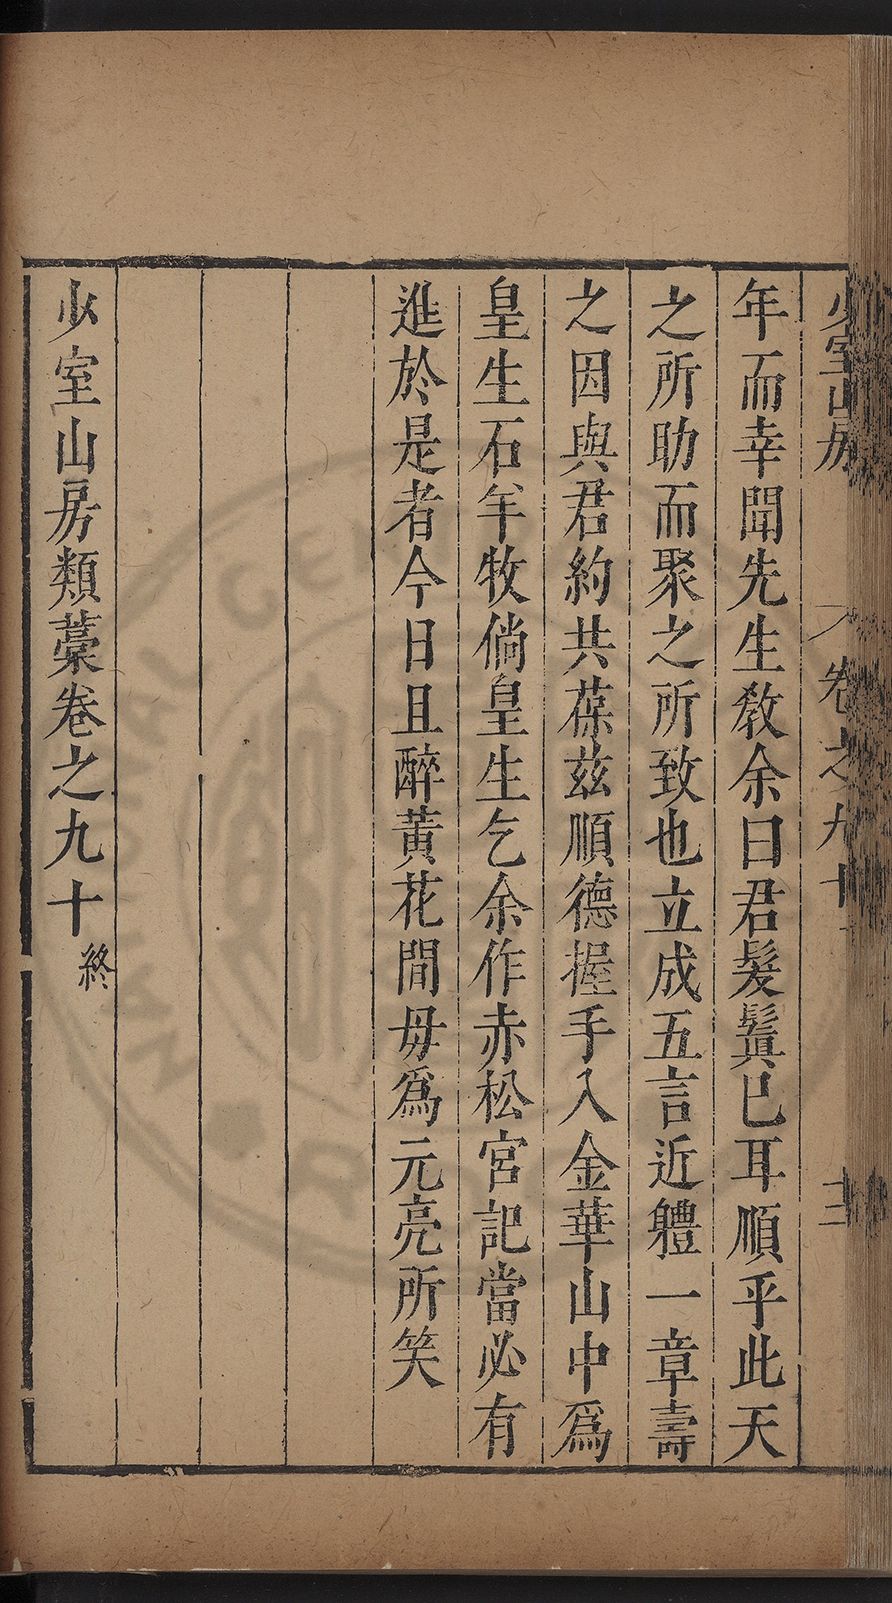 少室山房
卷之九十
十三
年而幸聞先生教余曰君髮鬒已耳順乎此天
之所助而聚之所致也立成五言近軆一章壽
之因與君約共葆茲順德握手入金華山中爲
皇生石羊牧倘皇生乞余作赤松宮記當必有
進於是者今日且醉黃花間毋爲元亮所笑
少室山房類藁卷之九十終